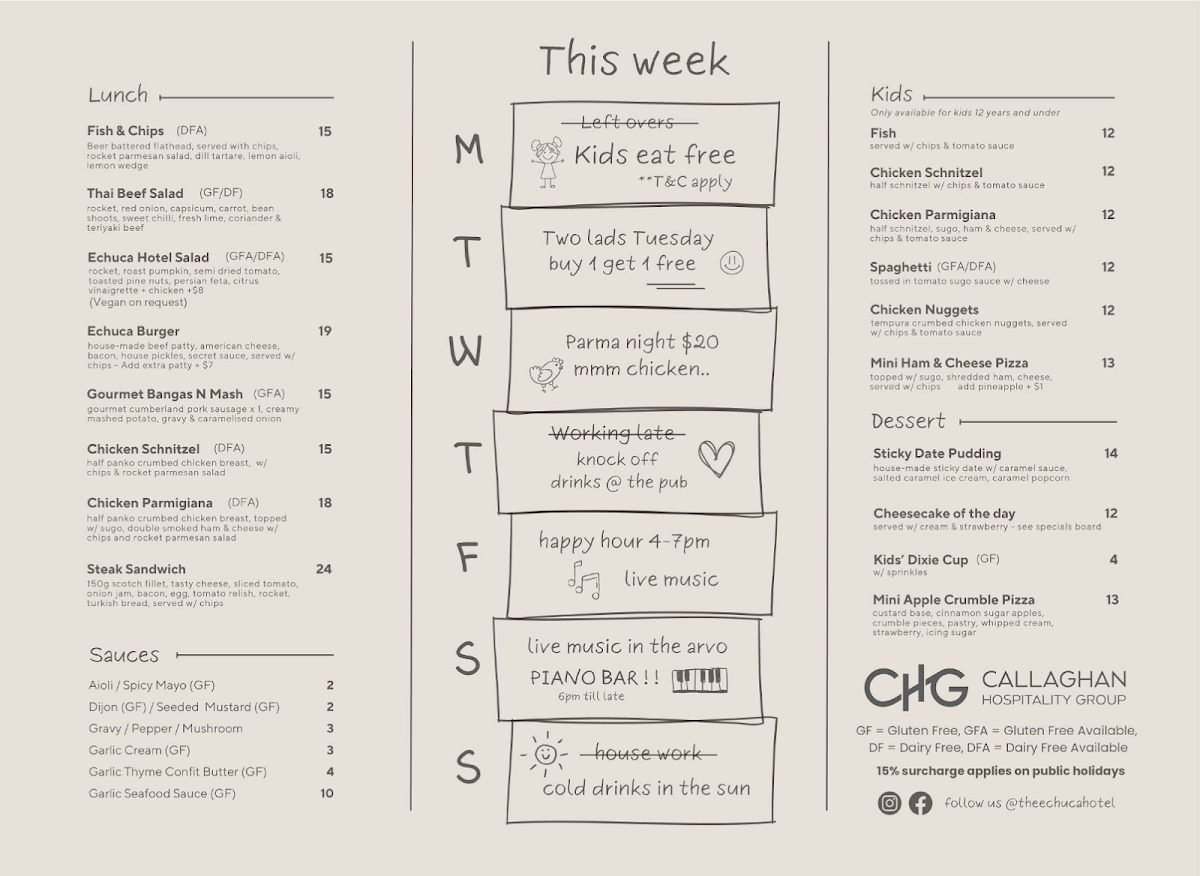 Lunch
Fish & Chips (DFA) 15
Beer battered flathead, served with chips,
rocket parmesan salad, dill tartare, lemon aioli,
lemon wedge
Thai Beef Salad (GF/DF) 18
rocket, red onion, capsicum, carrot, bean
shoots, sweet chilli, fresh lime, coriander &
teriyaki beef
Echuca Hotel Salad (GFA/DFA) 15
rocket, roast pumpkin, semi dried tomato,
toasted pine nuts, persian feta, citrus
vinaigrette + chicken +$8
(Vegan on request)
Echuca Burger 19
house-made beef patty, american cheese,
bacon, house pickles, secret sauce, served w/
chips - Add extra patty + $7
Gourmet Bangas N Mash (GFA) 15
gourmet cumberland pork sausage x 1, creamy
mashed potato, gravy & caramelised onion
Chicken Schnitzel (DFA) 15
half panko crumbed chicken breast, w/
chips & rocket parmesan salad
Chicken Parmigiana (DFA) 18
half panko crumbed chicken breast, topped
w/ sugo, double smoked ham & cheese w/
chips and rocket parmesan salad
Steak Sandwich 24
150g scotch fillet, tasty cheese, sliced tomato,
onion jam, bacon, egg, tomato relish, rocket,
turkish bread, served w/ chips
Sauces
Aioli / Spicy Mayo (GF) 2
Dijon (GF) / Seeded Mustard (GF) 2
Gravy / Pepper / Mushroom 3
Garlic Cream (GF) 3
Garlic Thyme Confit Butter (GF) 4
Garlic Seafood Sauce (GF) 10
This week
M
Left overs
Kids eat free
**T&C apply
T
Two lads Tuesday
buy 1 get 1 free
W
Parma night $20
mmm chicken..
T
Working late
knock off
drinks @ the pub
F
happy hour 4-7pm
live music
S
live music in the arvo
PIANO BAR !!
6pm till late
S
house work
cold drinks in the sun
Kids
Only available for kids 12 years and under
Fish 12
served w/ chips & tomato sauce
Chicken Schnitzel 12
half schnitzel w/ chips & tomato sauce
Chicken Parmigiana 12
half schnitzel, sugo, ham & cheese, served w/
chips & tomato sauce
Spaghetti (GFA/DFA) 12
tossed in tomato sugo sauce w/ cheese
Chicken Nuggets 12
tempura crumbed chicken nuggets, served
w/ chips & tomato sauce
Mini Ham & Cheese Pizza 13
topped w/ sugo, shredded ham, cheese,
served w/ chips add pineapple + $1
Dessert
Sticky Date Pudding 14
house-made sticky date w/ caramel sauce,
salted caramel ice cream, caramel popcorn
Cheesecake of the day 12
served w/ cream & strawberry - see specials board
Kids' Dixie Cup (GF) 4
w/ sprinkles
Mini Apple Crumble Pizza 13
custard base, cinnamon sugar apples,
crumble pieces, pastry, whipped cream,
strawberry, icing sugar
CHG CALLAGHAN
HOSPITALITY GROUP
GF = Gluten Free, GFA = Gluten Free Available,
DF = Dairy Free, DFA = Dairy Free Available
15% surcharge applies on public holidays
follow us @theechucahotel